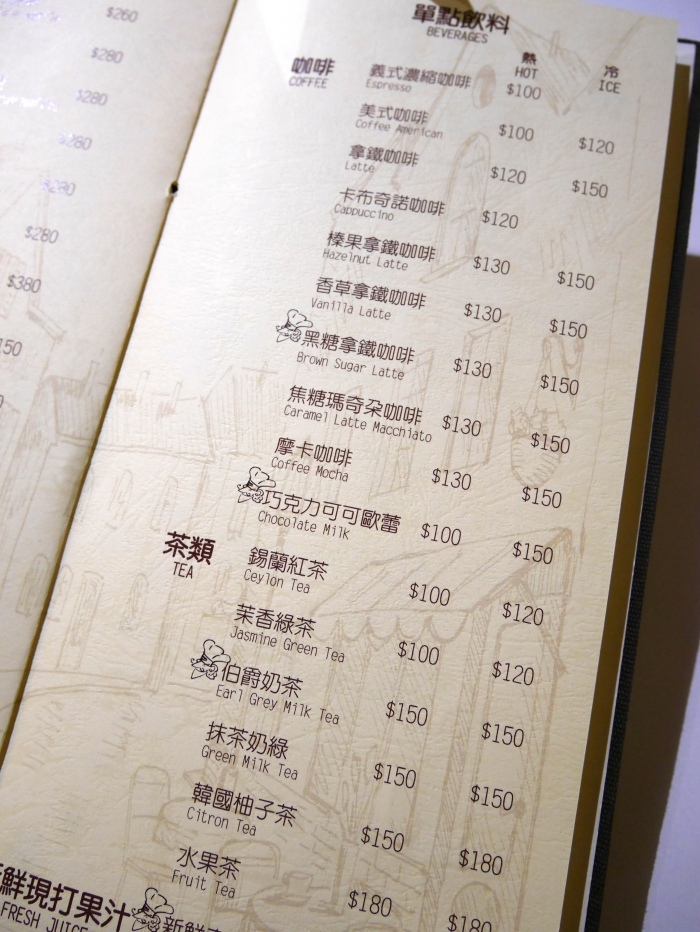 $260
$280
$280
$280
$280
$280
$380
單點飲料
BEVERAGES
熱 冷
HOT ICE
咖啡
COFFEE
義式濃縮咖啡 $100
Espresso
美式咖啡 $100 $120
Coffee American
拿鐵咖啡 $120 $150
Latte
卡布奇諾咖啡 $120
Cappuccino
榛果拿鐵咖啡 $130 $150
Hazelnut Latte
香草拿鐵咖啡 $130 $150
Vanilla Latte
黑糖拿鐵咖啡 $130 $150
Brown Sugar Latte
焦糖瑪奇朵咖啡 $130 $150
Caramel Latte Macchiato
摩卡咖啡 $130 $150
Coffee Mocha
巧克力可可歐蕾 $100 $150
Chocolate Milk
茶類
TEA
錫蘭紅茶 $100 $120
Ceylon Tea
茉香綠茶 $100 $120
Jasmine Green Tea
伯爵奶茶 $150 $150
Earl Grey Milk Tea
抹茶奶綠 $150 $150
Green Milk Tea
韓國柚子茶 $150 $180
Citron Tea
水果茶 $180 $180
Fruit Tea
鮮現打果汁
FRESH JUICE
新鮮